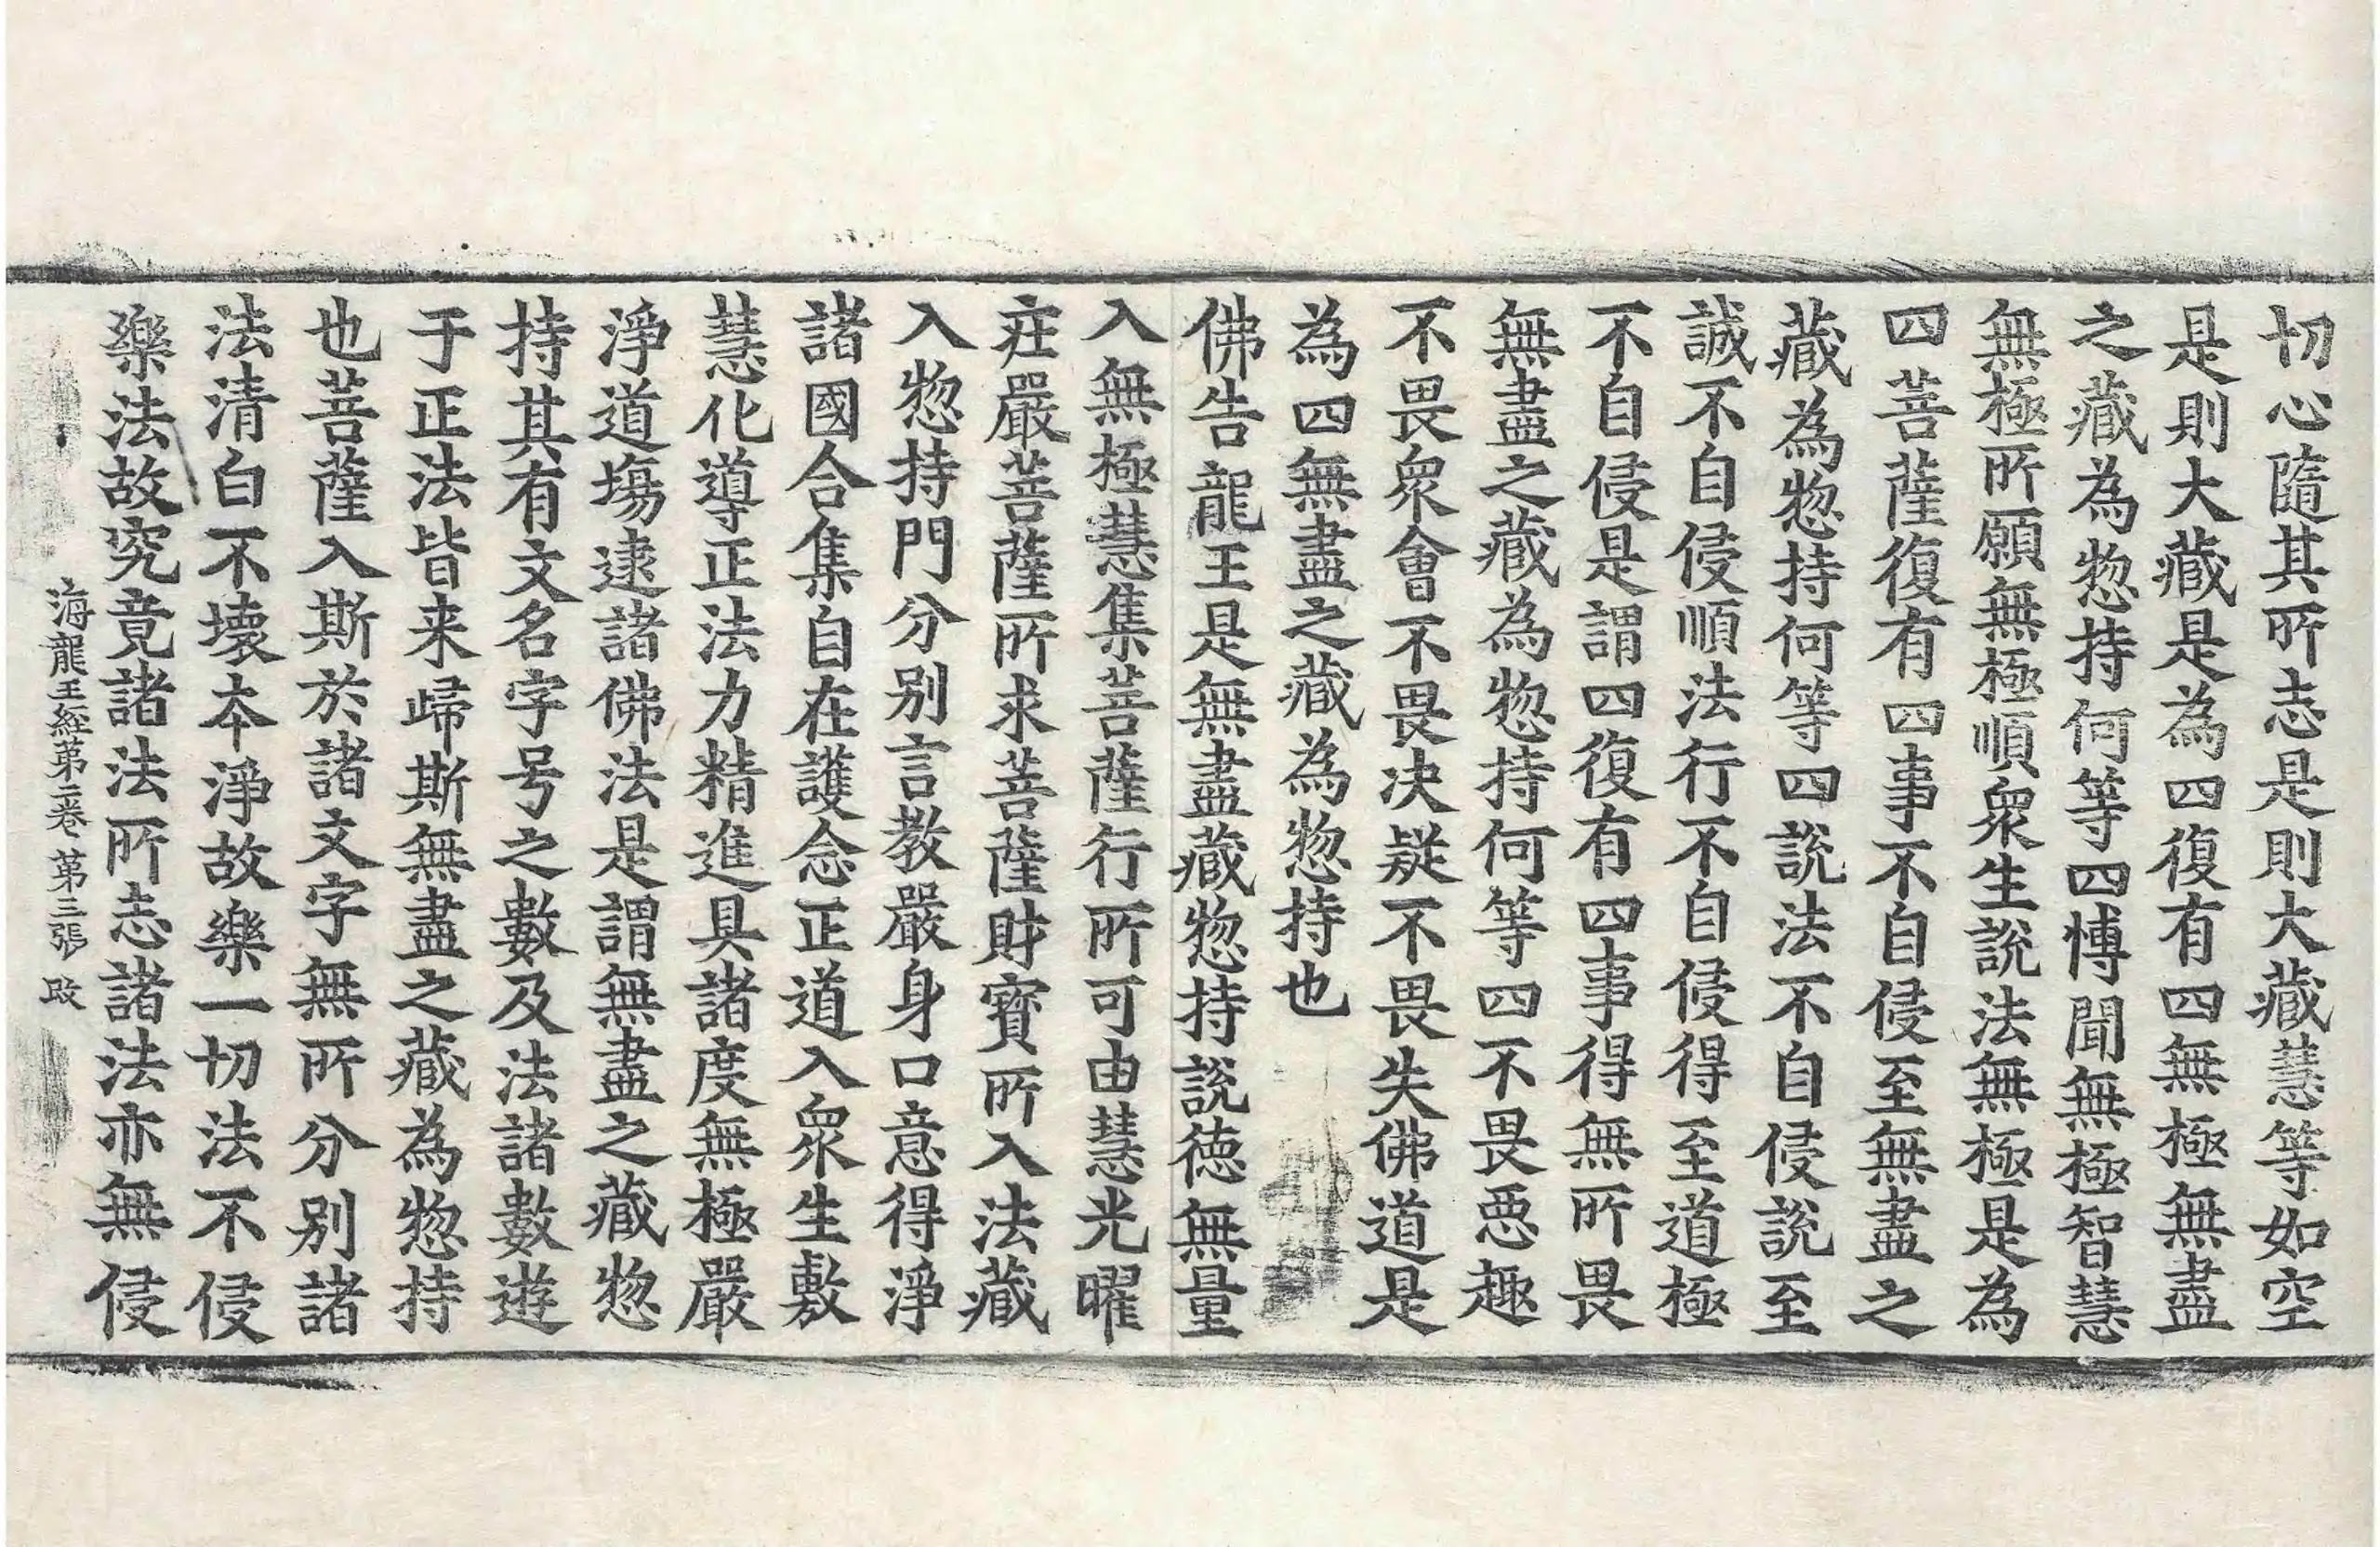 切心隨其所志是則大藏慧等如空
是則大藏是為四復有四無極無盡
之藏為惣持何等四愽聞無極智慧
無極所願無極順衆生說法無極是為
四菩薩復有四事不自侵至無盡之
藏為惣持何等四說法不自侵說至
誠不自侵順法行不自侵得至道極
不自侵是謂四復有四事得無所畏
無盡之藏為惣持何等四不畏惡趣
不畏衆會不畏决疑不畏失佛道是
為四無盡之藏為惣持也
佛告龍王是無盡藏惣持說德無量
入無極慧集菩薩行所可由慧光曜
莊嚴菩薩所求菩薩財寶所入法藏
入惣持門分別言教嚴身口意得淨
諸國合集自在護念正道入衆生敷
慧化導正法力精進具諸度無極嚴
淨道塲逮諸佛法是謂無盡之藏惣
持其有文名字号之數及法諸數遊
于正法皆来歸斯無盡之藏為惣持
也菩薩入斯於諸文字無所分別諸
法清白不壞本淨故樂一切法不侵
樂法故究竟諸法所志諸法亦無侵
海龍王經第二卷 第三張 改